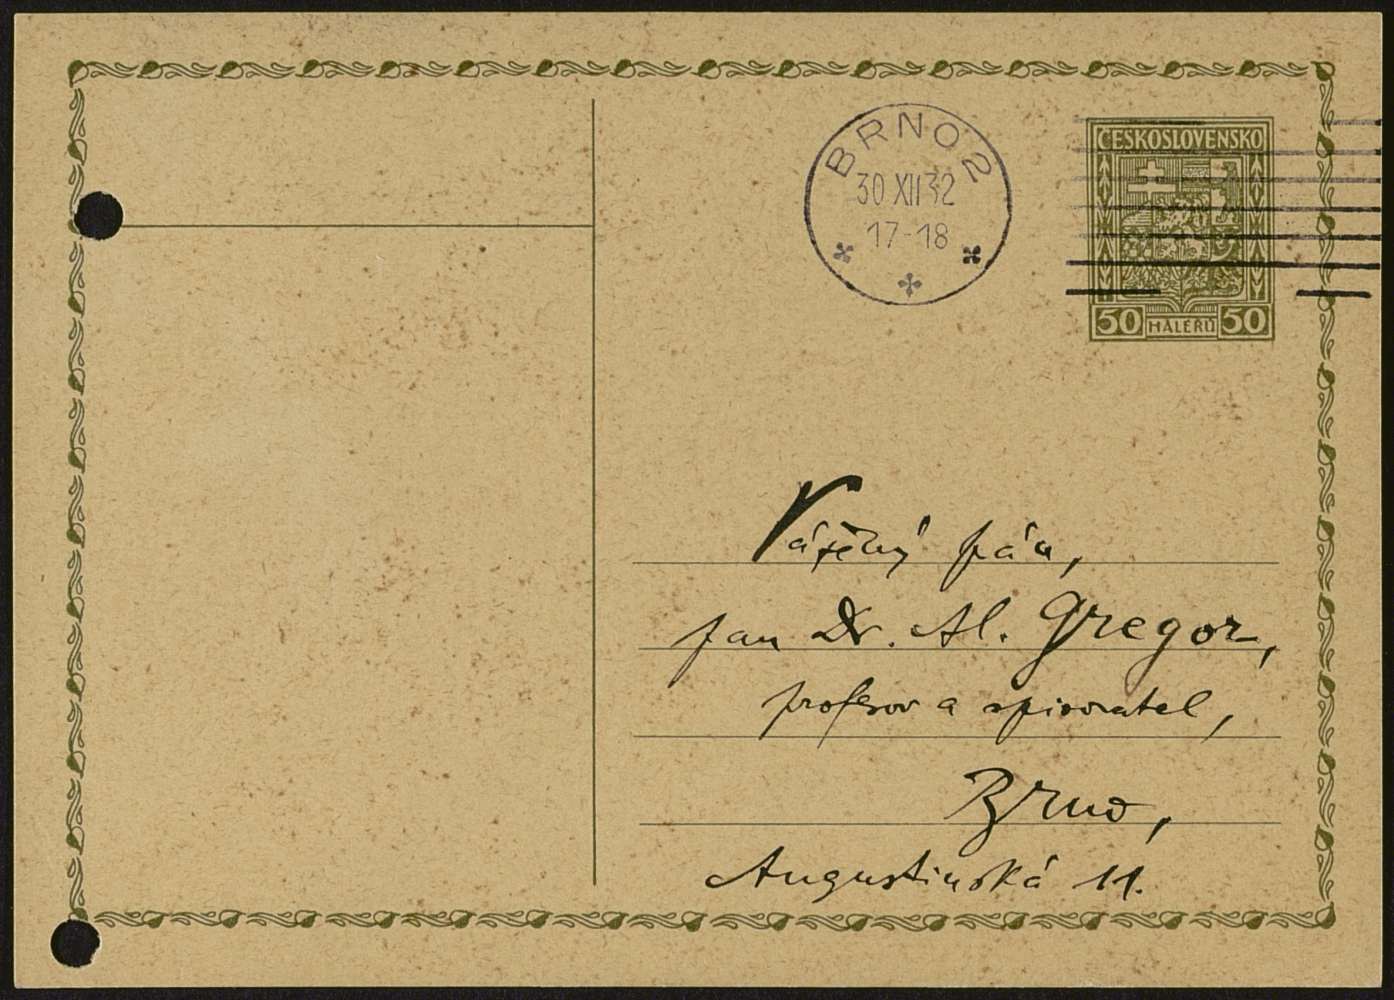 BRNO 2
30 XII 32
17-18
ČESKOSLOVENSKO
50 HALÉRŮ 50
Vážený pán,
pan Dr. Al. Gregor,
profesor a spisovatel,
Brno,
Augustinská 11.